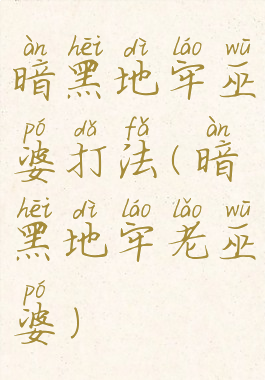 àn hēi dì láo wū
暗黑地牢巫
pó dǎ fǎ àn
婆打法(暗
hēi dì láo lǎo wū
黑地牢老巫
pó
婆)